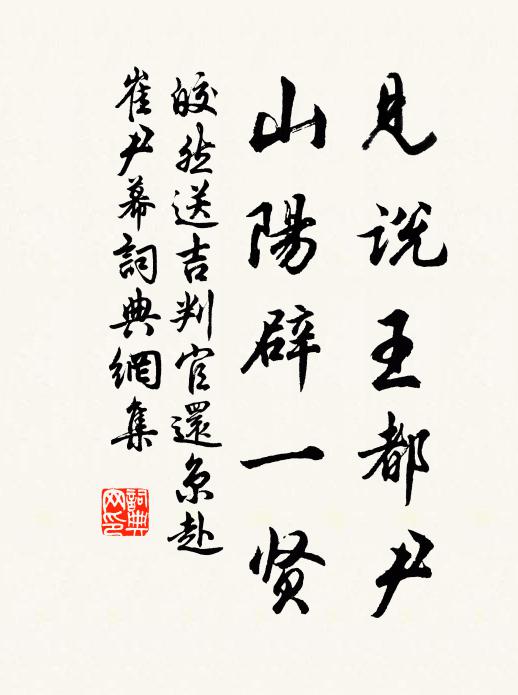 見説王都尹
山陽辟一贤
皎然送吉判官還京赴
崔尹幕詞典網集
詞典
网印